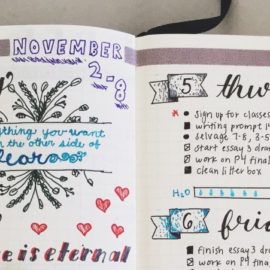 NOVEMBER
2-8
thing you want
the other side of
fear
e is eternal
5 thur
SIGN UP FOR CLASSES
WRITING PROMPT
SELVAGE 7-8,
START ESSAY 3 DRA
WORK ON P4 FINAL
CLEAN LITTER BOX
H2O
6 frid
FINISH ESSAY 3 D
WORK ON P4 FINAL